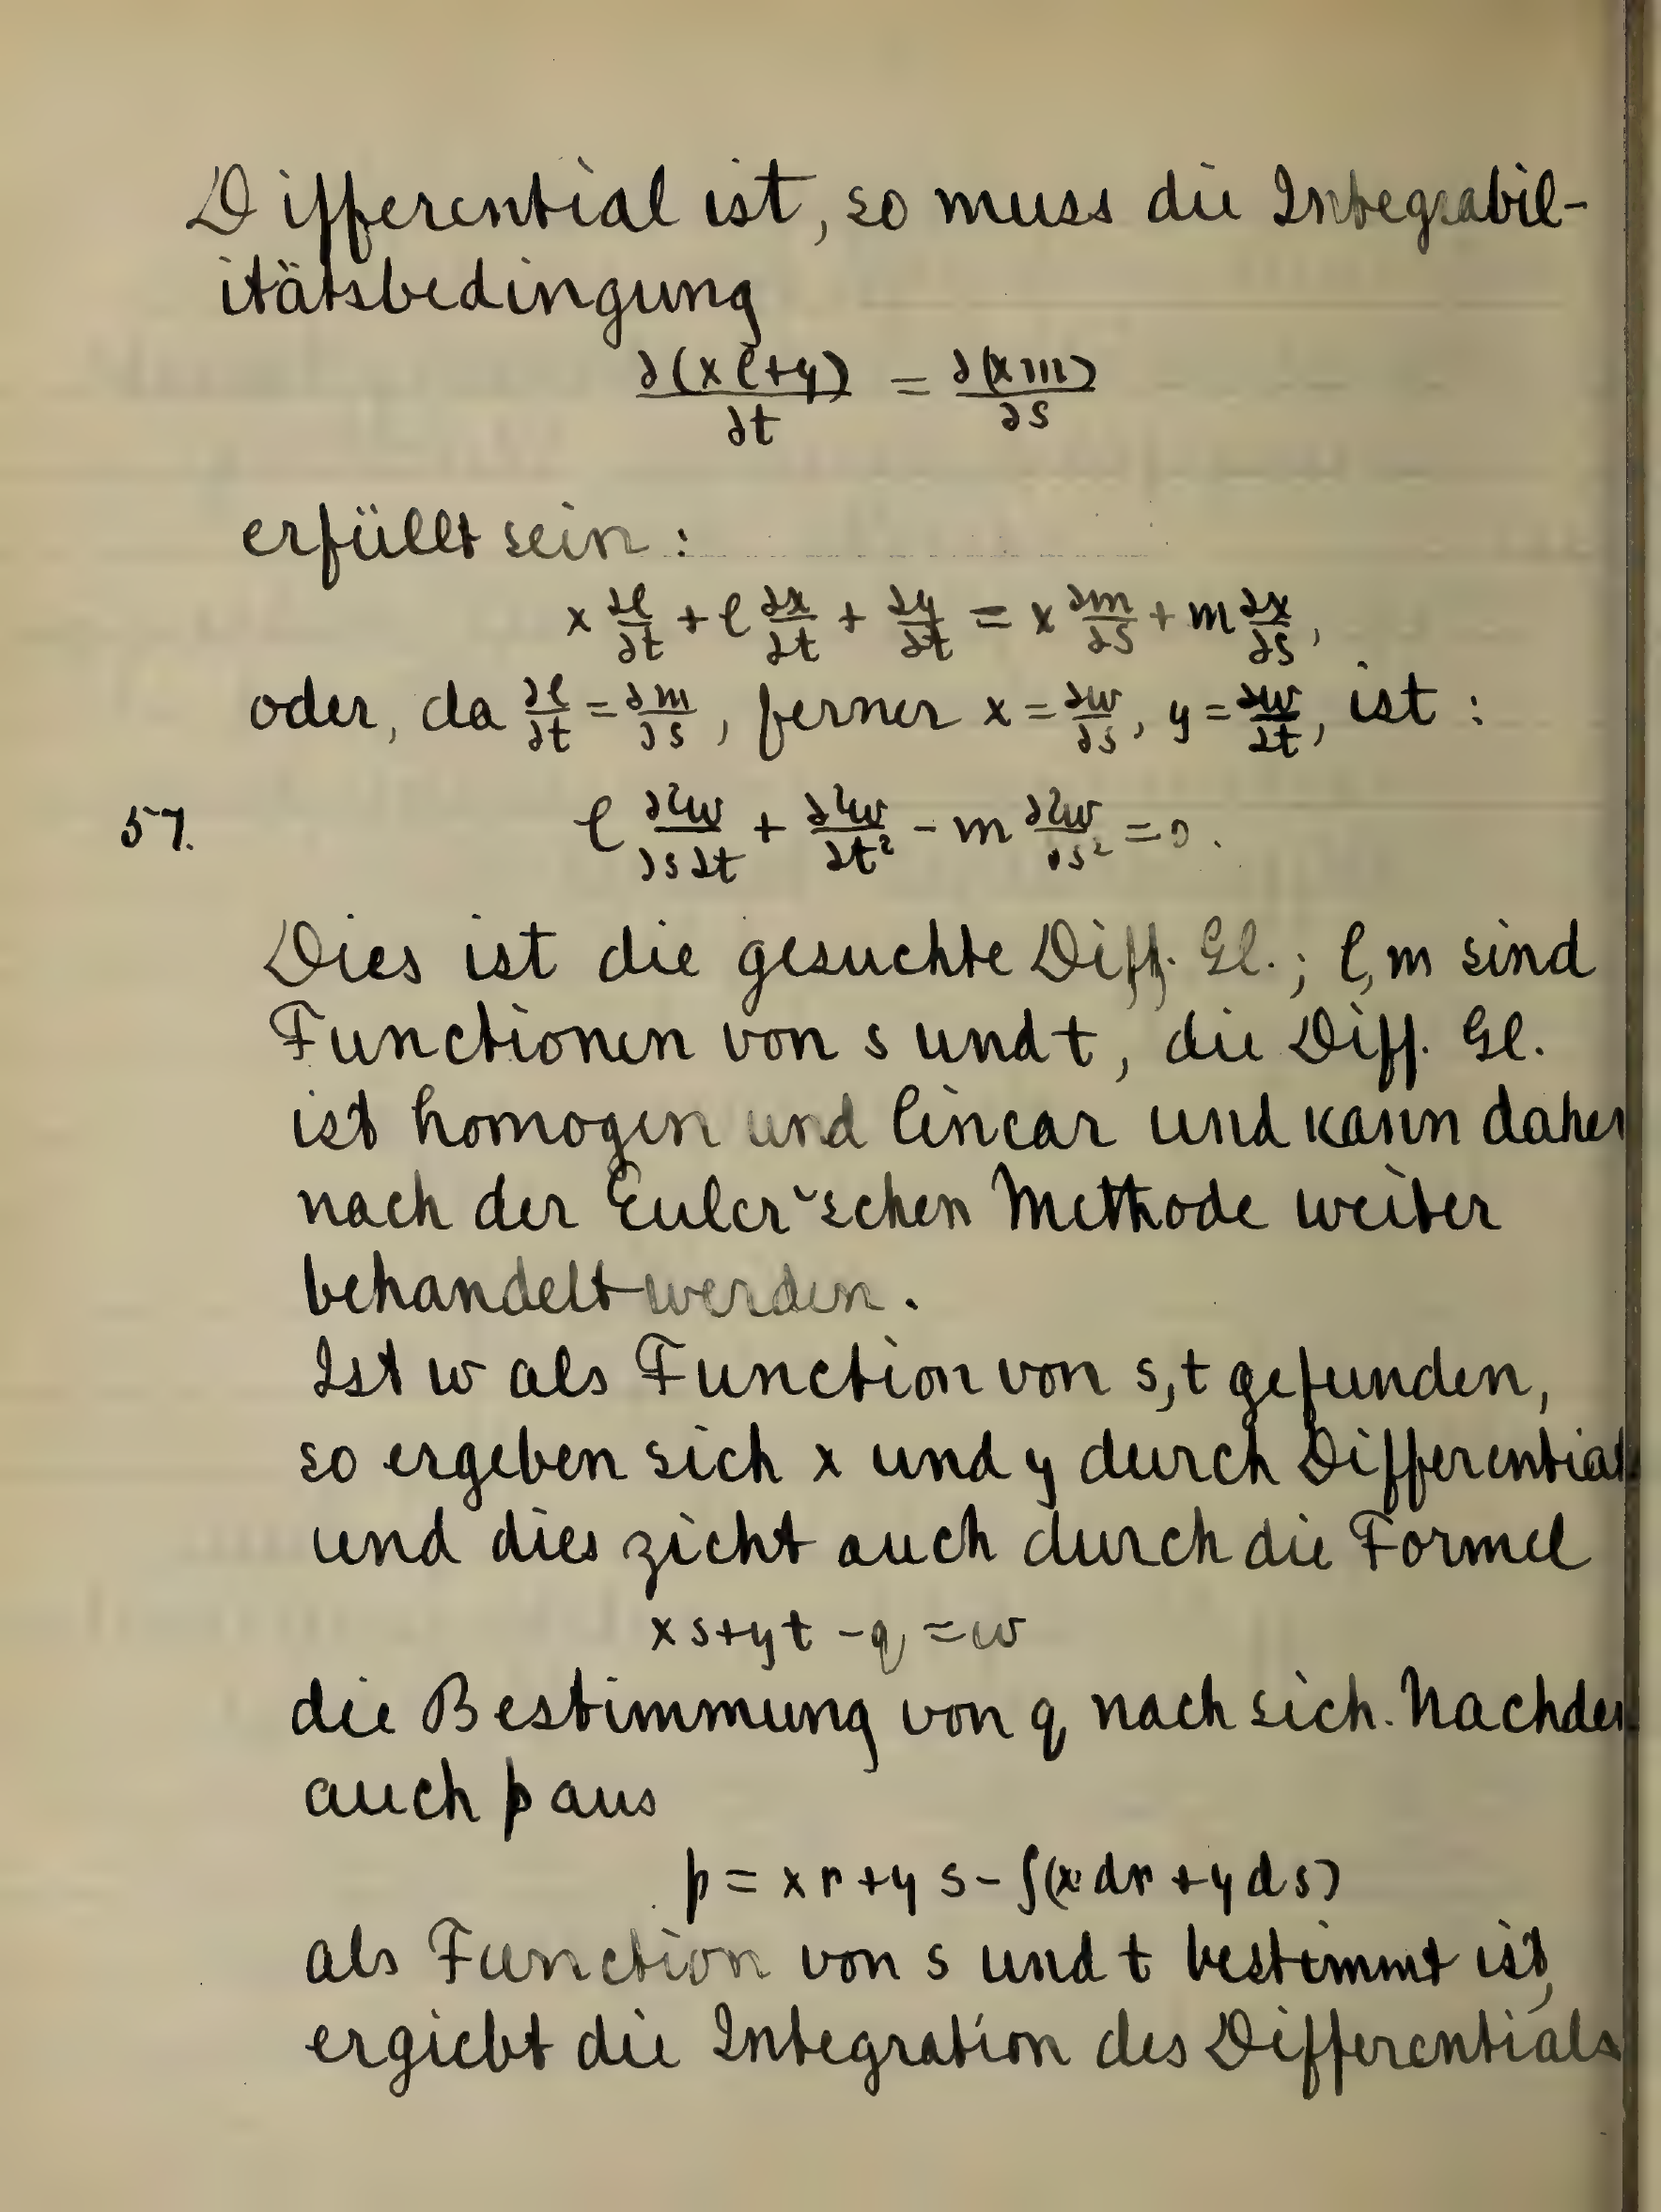 Differential ist, so muss die Integrabil-
itätsbedingung
∂(xl+y)/∂t = ∂(xm)/∂s
erfüllt sein:
x ∂l/∂t + l ∂x/∂t + ∂y/∂t = x ∂m/∂s + m ∂x/∂s,
oder, da ∂l/∂t = ∂m/∂s, ferner x = ∂w/∂s, y = ∂w/∂t, ist:
57. l ∂²w/∂s∂t + ∂²w/∂t² - m ∂²w/∂s² = 0.
Dies ist die gesuchte Diff. Gl.; l, m sind
Functionen von s und t, die Diff. Gl.
ist homogen und linear und kann daher
nach der Euler'schen Methode weiter
behandelt werden.
Ist w als Function von s, t gefunden,
so ergeben sich x und y durch Differential
und dies zieht auch durch die Formel
xs+yt-q=w
die Bestimmung von q nach sich. Nachdem
auch p aus
p = xr+ys-∫(xdr+yds)
als Function von s und t bestimmt ist,
ergiebt die Integration des Differentials